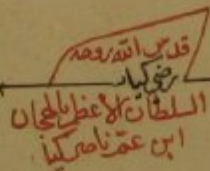 قدس الله روحه
رضي كيا
السلطان الاعظم
ابن عم ناصر كيا